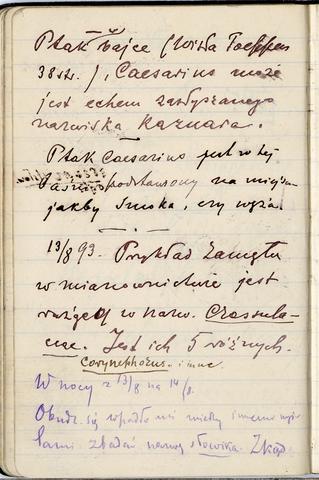 Ptak Bajce (Wisła Toeppen
38 str.), Caesarius może
jest echem zasłyszanego
nazwiska Kaznara.
Ptak Caesarius jest w tej
podstawiony na miejscu
jakby smoka, czy węża.
13/8 93. Przykład zamętu
w mianownictwie jest
w nazw. Crassula-
ceae. Jest ich 5 różnych.
Corynephorus. i inne
W nocy z 13/8 na 14/8.
Obudz. się wpadło mi między innemi
zbadać nazwę słowika. Zkąd